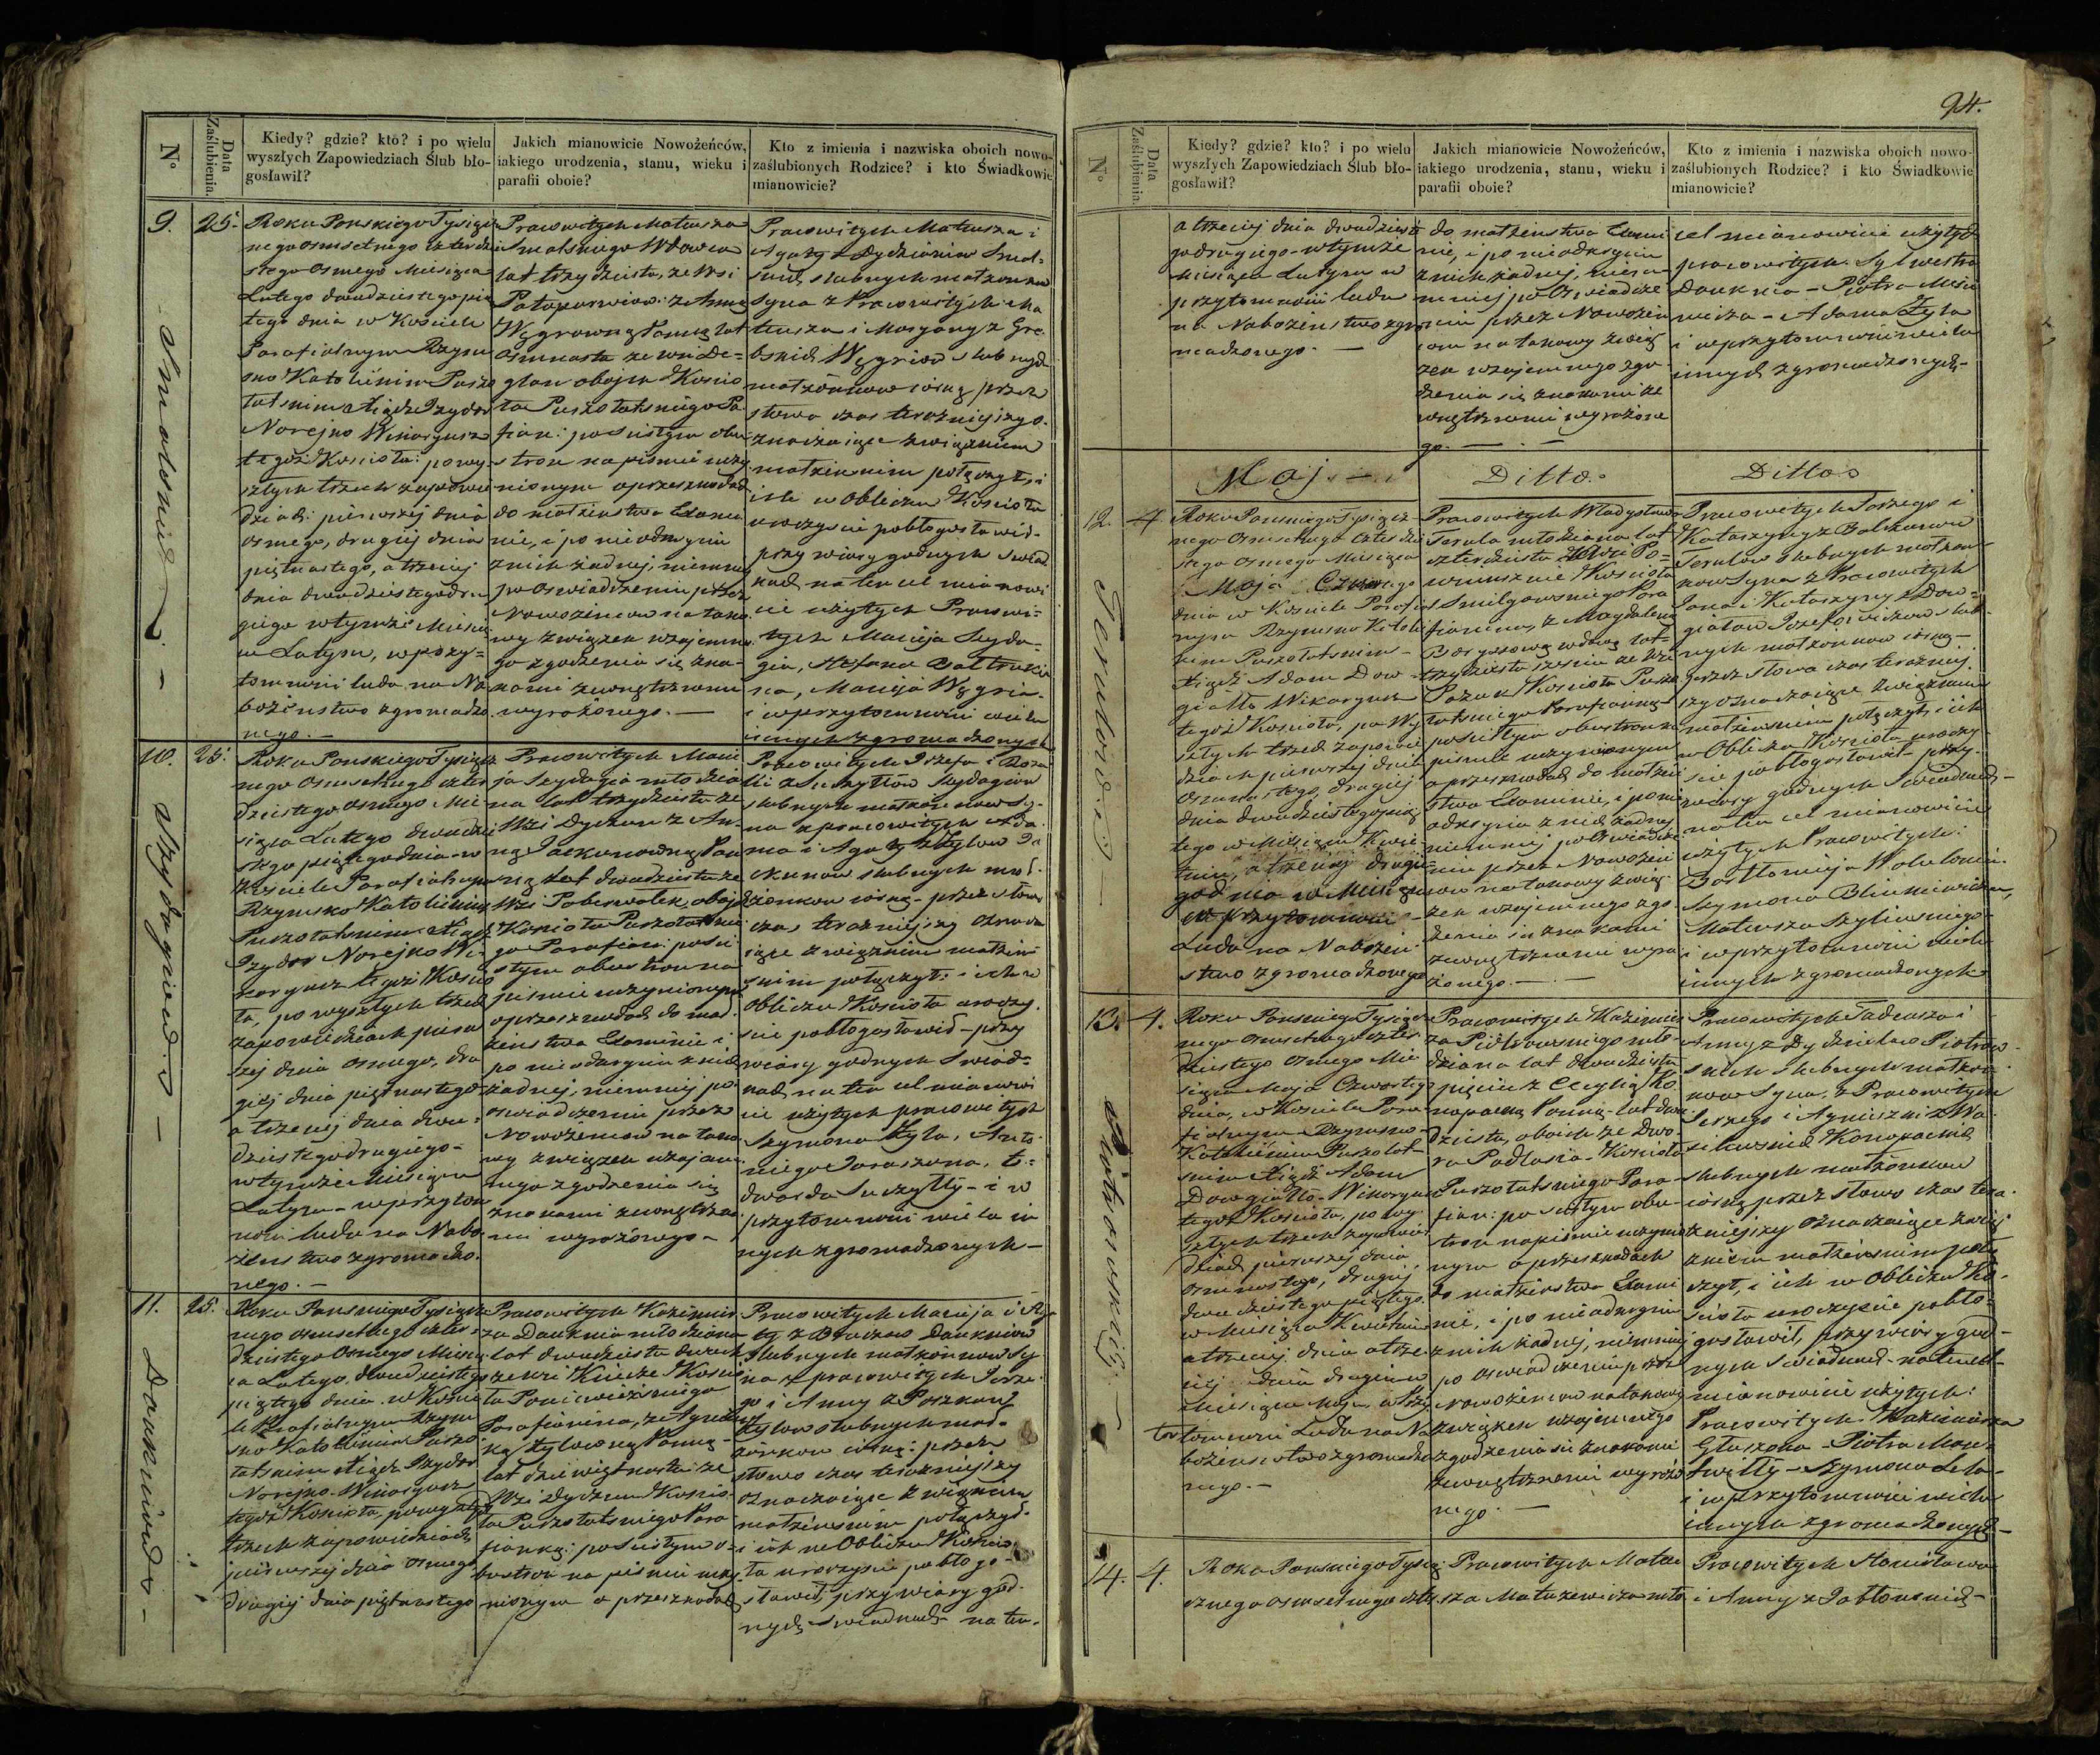 94.
N°
Data Zaślubienia.
Kiedy? gdzie? kto? i po wielu
wyszłych Zapowiedziach Ślub bło-
gosławił?
Jakich mianowicie Nowożeńców,
iakiego urodzenia, stanu, wieku i
parafii oboie?
Kto z imienia i nazwiska oboich nowo-
zaślubionych Rodzice? i kto Świadkowie
mianowicie?
9.
25.
Roku Pańskiego Tysiącz
nego osmsetnego czterdzie
stego osmego Miesiąca
Lutego dwudziestego pią
tego dnia w Kościele
Parafialnym Rzym
sko Katolickim Puszo
łatskim Xiądz Izydor
Norejko Wikaryusz
tegoż Kościoła: po wy-
szłych trzech zapowie
dziach: pierwszej dnia
osmego, drugiej dnia
piętnastego, a trzeciej
dnia dwudziestego dru
giego w tymże Miesią
cu Lutym, w przy-
tomności ludu na Na
bożeństwo zgromadzo
nego. —
Pracowitych Mateusza
Smalskiego Wdowca
lat trzydziestu, ze Wsi
z Anną
Węgrowną Panną lat
osmnastu ze wsi De=
glan obojga Kościo
ła Puszołatskiego Pa
rafian: po ścisłym obu
stron na piśmie uczy
nionym o przeszkodach
do małżeństwa Exami
nie, i po nieodkryciu
z nich żadnej, niemniej
po oświadczeniu przez
Nowożeńców na tako
wy związek wzajemne
go zgodzenia się zna-
kami zewnętrznemi
wyrażonego. —
Pracowitych Mateusza i
Agaty z Dydzianow Smal-
skich ślubnych małżonków
Syna z Pracowitych Ma
teusza i Maryanny z Gra
bskich Węgrów ślubnych
małżonków córką przez
słowa czas teraźniejszy o-
znaczaiące związkiem
małżeńskim połączył i
ich w Obliczu Kościoła
uroczyście pobłogosławił-
przy wiary godnych świad
kach na ten cel mianowi
cie użytych Pracowi=
tych Macieja Szyda=
gia, Stefana Baltruki
na, Macieja Węgra-
i w przytomności wielu
innych zgromadzonych
10.
25.
Szydagiow
Roku Pańskiego Tysiącz
nego Osmsetnego czter
dziestego osmego Mie-
siąca Lutego dwudzie
stego piątego dnia - w
Kościele Parafialnym
Rzymsko Katolickim
Puszołatskim Xiądz
Izydor Norejko Wi-
karyusz tegoż Kościo
ła, po wyszłych trzech
zapowiedziach pierw
szej dnia osmego, dru
giej dnia piętnastego
a trzeciej dnia dwu-
dziestego drugiego-
w tymże Miesiącu
Lutym - w przytom
ności ludu na Nabo
żeństwo zgromadzo.
nego. —
Pracowitych Macie
ja Szydagia młodzia
na lat trzydziestu ze
Wsi Dyczun z An-
ną Jackunowną Pan
ną lat dwudziestu ze
Wsi Poberwołek, obojga
Kościoła Puszołatskie
go Parafian: po ści-
słym obu stron na
piśmie uczynionym
o przeszkodach do mał-
żeństwa Examinie i
po nieodkryciu z nich
żadnej, niemniej po-
oświadczeniu przez
Nowożeńców na tako
wy związek wzajem
nego zgodzenia się
znakami zewnętrzne
mi wyrażonego -
Pracowitych Józefa i Roza
lii z Suszyłłów Szydagiow
ślubnych małżonków Sy-
na z pracowitych Ada
ma i Agaty z Zyłow Ja
ckunow ślubnych mał-
żonków córką - przez słowa
czas teraźniejszy oznacza
iące związkiem małżeń
skim połączył: i ich w
Obliczu Kościoła uroczy-
ście pobłogosławił - przy
wiary godnych Świad-
kach na ten cel mianowi
cie użytych pracowitych
Szymona Zyla, Anto
niego Jaraszuna, E-
dwarda Suszyłły - i w
przytomności wielu in
nych zgromadzonych -
11.
25.
Daukniow -
Roku Pańskiego Tysiącz
nego osmsetnego czter-
dziestego Osmego Miesią
ca Lutego, dwudziestego
piątego dnia w Koście
le Parafialnym Rzym
sko Katolickim Puszo
łatskim Xiądz Izydor
Norejko Wikaryusz
tegoż Kościoła, po wyszłych
trzech zapowiedziach
pierwszej dnia osmego
drugiej dnia piętnastego
Pracowitych Kazimier
za Daukni młodziana
lat dwudziestu dwóch
ze wsi Knieże Kościo
ła Poniewiezskiego
Parafianina, z Agniesz
ką Zyłowną Panną -
lat dziewiętnastu ze
Wsi Dyczun Kościo
ła Puszołatskiego Para
fianką: po ścisłym o-
bustron na piśmie uczy
nionym o przeszkodach
Pracowitych Macieja i Aga
ty z Daukniow
Ślubnych małżonków Sy
na z pracowitych Jerze
go i Anny z Poszkow
Zyłow ślubnych mał-
żonków córką: przez
słowa czas teraźniejszy
oznaczaiące związkiem
małżeńskim połączył-
i ich w Obliczu Kościo
ła uroczyście pobłogo
sławił, przy wiary god-
nych Świadkach na ten.
N°
Data Zaślubienia.
Kiedy? gdzie? kto? i po wielu
wyszłych Zapowiedziach Ślub bło-
gosławił?
Jakich mianowicie Nowożeńców,
iakiego urodzenia, stanu, wieku i
parafii oboie?
Kto z imienia i nazwiska oboich nowo-
zaślubionych Rodzice? i kto Świadkowie
mianowicie?
a trzeciej dnia dwudziest
go drugiego - w tymże
Miesiącu Lutym w
przytomności ludu
na Nabożeństwo zgro
madzonego. —
do małżeństwa Exami
nie, i po nieodkryciu
z nich żadnej, niem-
niej po oświadcze
niu przez Nowożeń
ców na takowy zwią
zek wzajemnego zgo
dzenia się znakami ze
wnętrznemi wyrażone
go. — . —
cel mianowicie użytych
pracowitych Sylwestra
Dauknia - Piotra Misie
wicza - Adama Zyla
i w przytomności wielu
innych zgromadzonych -
Maj. —
Ditto.
Ditto
12.
4.
Roku Pańskiego Tysiącz
nego Osmsetnego Czterdzie
stego Osmego Miesiąca
Maja Czwartego
dnia w Kościele Parafial
nym Rzymsko Katoli
ckim Puszołatskim -
Xiądz Adam Dow-
giałło Wikaryusz
tegoż Kościoła, po wy
szłych trzech zapowie
dziach pierwszej dnia
osmnastego, drugiej
dnia dwudziestego pią
tego w Miesiącu Kwie
tniu, a trzeciej drugie
go dnia w Miesiącu
w przytomności -
Ludu na Nabożeń-
stwo zgromadzonego
Pracowitych Władysława
Terula młodziana lat
czterdziestu ze Wsi Po-
wismenie Kościoła
Smilgowskiego Para
fianina, z Magdaleną
Borysową wdową lat
trzydziestu sześciu ze Wsi
Pażuk Kościoła Pusza
łatskiego Parafianką
po ścisłym obustron na
piśmie uczynionym
o przeszkodach do małżeń
stwa Examinie, i po nie
odkryciu z nich żadnej
niemniej po oświadcze
niu przez Nowożeń
ców na takowy zwią-
zek wzajemnego zgo
dzenia się znakami
zewnętrznemi wyra
żonego. —
Pracowitych Jerzego i
Katarzyny z Balkunow
Terulow ślubnych małżon-
kow Syna z Pracowitych
Jana i Katarzyny z Dow=
giałow Józefowiczow ślub-
nych małżonków córką -
przez słowa czas teraźniej.
szy oznaczaiące związkiem
małżeńskim połączył, i ich
w Obliczu Kościoła uroczy-
ście pobłogosławił przy-
wiary godnych Świadkach -
na ten cel mianowicie
użytych Pracowitych:
Bartłomieja
Szymona Blinkiewicza,
Mateusza Szyliwskiego -
i w przytomności wielu
innych zgromadzonych
13.
4.
Piotrowskich —
Roku Pańskiego Tysiącz
nego Osmsetnego czter
dziestego osmego Mie
siąca Maja Czwartego
dnia, w Kościele Para-
fialnym Rzymsko -
Katolickim Puszołat-
skim Xiądz Adam
Dowgiałło - Wikaryusz
tegoż Kościoła, po wy-
szłych trzech zapowie
dziach pierwszej dnia
osmnastego, drugiej
dwudziestego piątego
w Miesiącu Kwietniu
a trzeciej dnia
dnia drugiego w
Miesiącu Maju, w Przy
tomności Ludu na Na
bożeństwo zgromadzo
nego. —
Pracowitych Kazimier
za Piotrowskiego mło-
dziana lat dwudziestu
pięciu z Cecylią Ko
nopacką Panną - lat dwu
dziestu, oboich ze Dwo
ra Podlasia - Kościoła
Puszołatskiego Para-
fian: po ścisłym obu-
stron na piśmie uczynio
nym o przeszkodach
do małżeństwa Exami
nie, i po nieodkryciu
z nich żadnej, niemniej
po oświadczeniu przez
Nowożeńców na takowy
związek wzajemnego
zgodzenia się znakami
zewnętrznemi wyrażo
nego. —
Pracowitych Tadeusza i
Anny z Dydziulow Piotrow-
skich ślubnych małżon
kow Syna, z Pracowitych
Jerzego i Agnieszki z Wa-
silewskich Konopackich
ślubnych małżonków
córką przez słowa czas tera-
źniejszy oznaczaiące zwią
zkiem małżeńskim połą
czył, i ich w Obliczu Ko-
ścioła uroczyście pobło-
gosławił, przy wiary god-
nych Świadkach na ten cel -
mianowicie użytych:
Pracowitych Kazimierza
Piotra Mon-
twiłły - Szymona
i w przytomności wielu
innych zgromadzonych -
14.
4.
Roku Pańskiego Tysią
cznego osmsetnego czte
Pracowitych Mateu
sza Matuzewicza mło
Pracowitych Stanisława
i Anny z Jabłonskich -